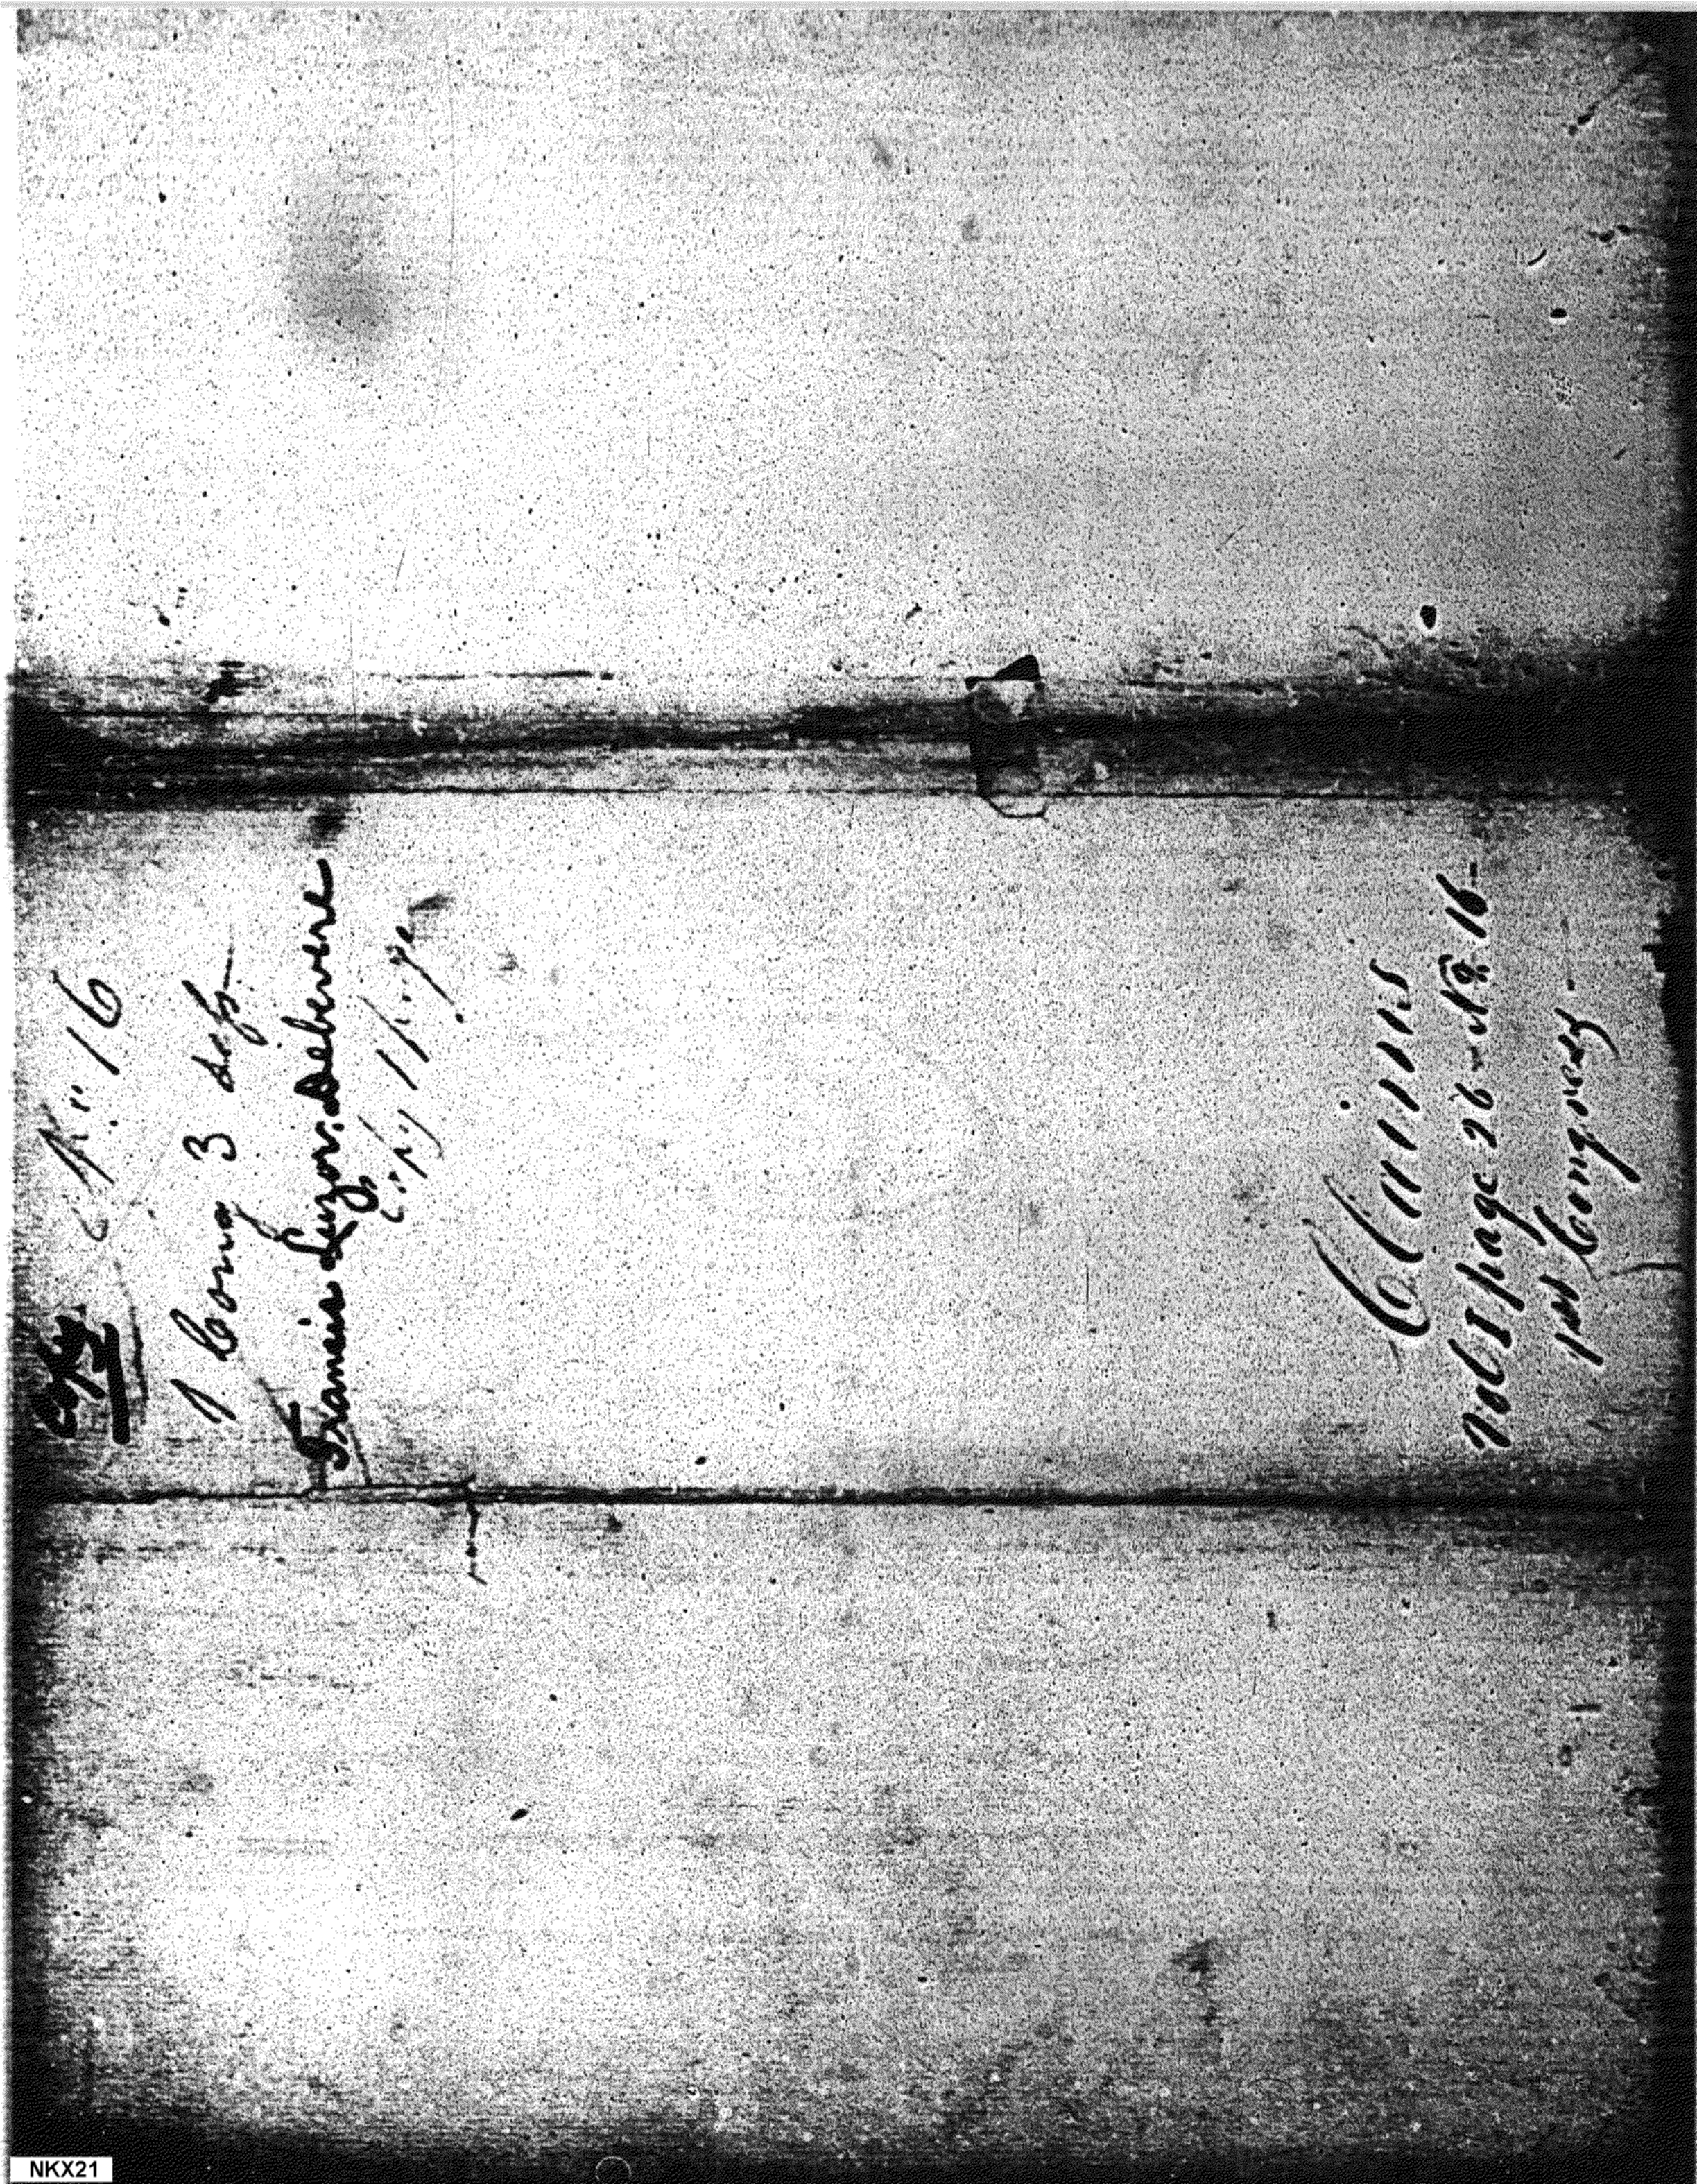 Copy
No. 16
1 Cong 3 Sess
Francis Suzor. Debevere
Claims
Vol I page 26 - No. 16 -
1st Congress -
NKX21